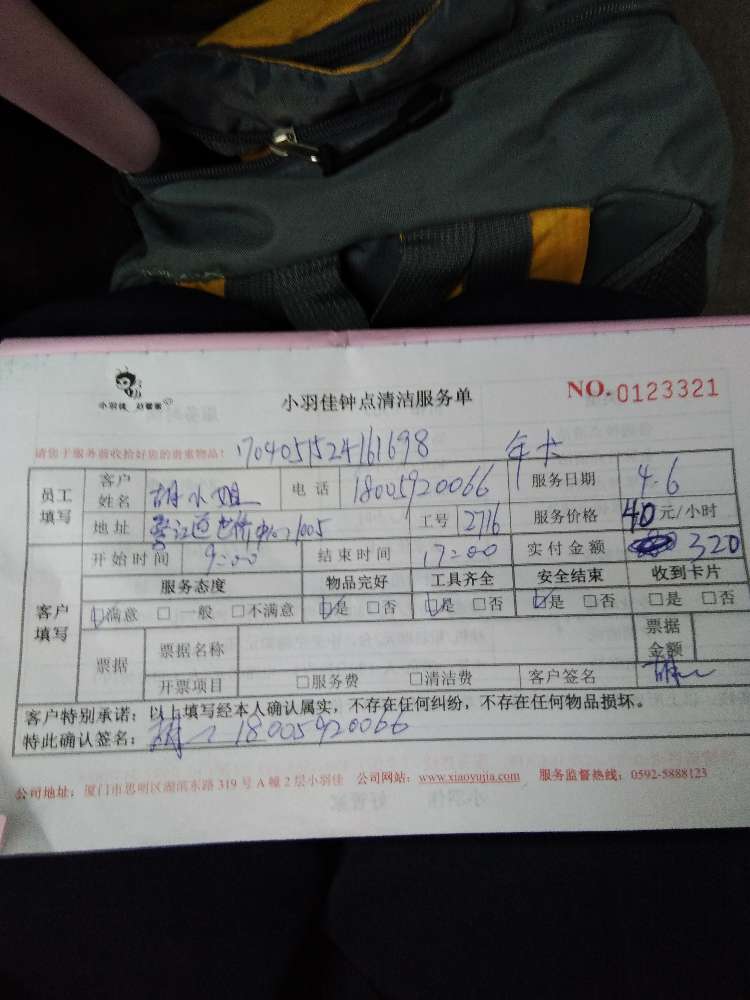 小羽佳 好管家
小羽佳钟点清洁服务单
NO.0123321
请您于服务前收拾好房的贵重物品! 1704051524161698 年卡
员工填写 客户姓名 胡小姐 电话 18005920066 服务日期 4.6
地址 1005 工号 2716 服务价格 40 元/小时
客户填写 开始时间 9:00 结束时间 17:00 实付金额 320
服务态度 物品完好 工具齐全 安全结束 收到卡片
☑满意 □一般 □不满意 ☑是 □否 ☑是 □否 ☑是 □否 □是 □否
票据 票据名称 票据金额
开票项目 □服务费 □清洁费 客户签名 胡
客户特别承诺:以上填写经本人确认属实,不存在任何纠纷,不存在任何物品损坏。
特此确认签名: 胡 18005920066
公司地址:厦门市思明区湖滨东路 319 号 A 幢 2 层小羽佳 公司网站:www.xiaoyujia.com 服务监督热线:0592-5888123